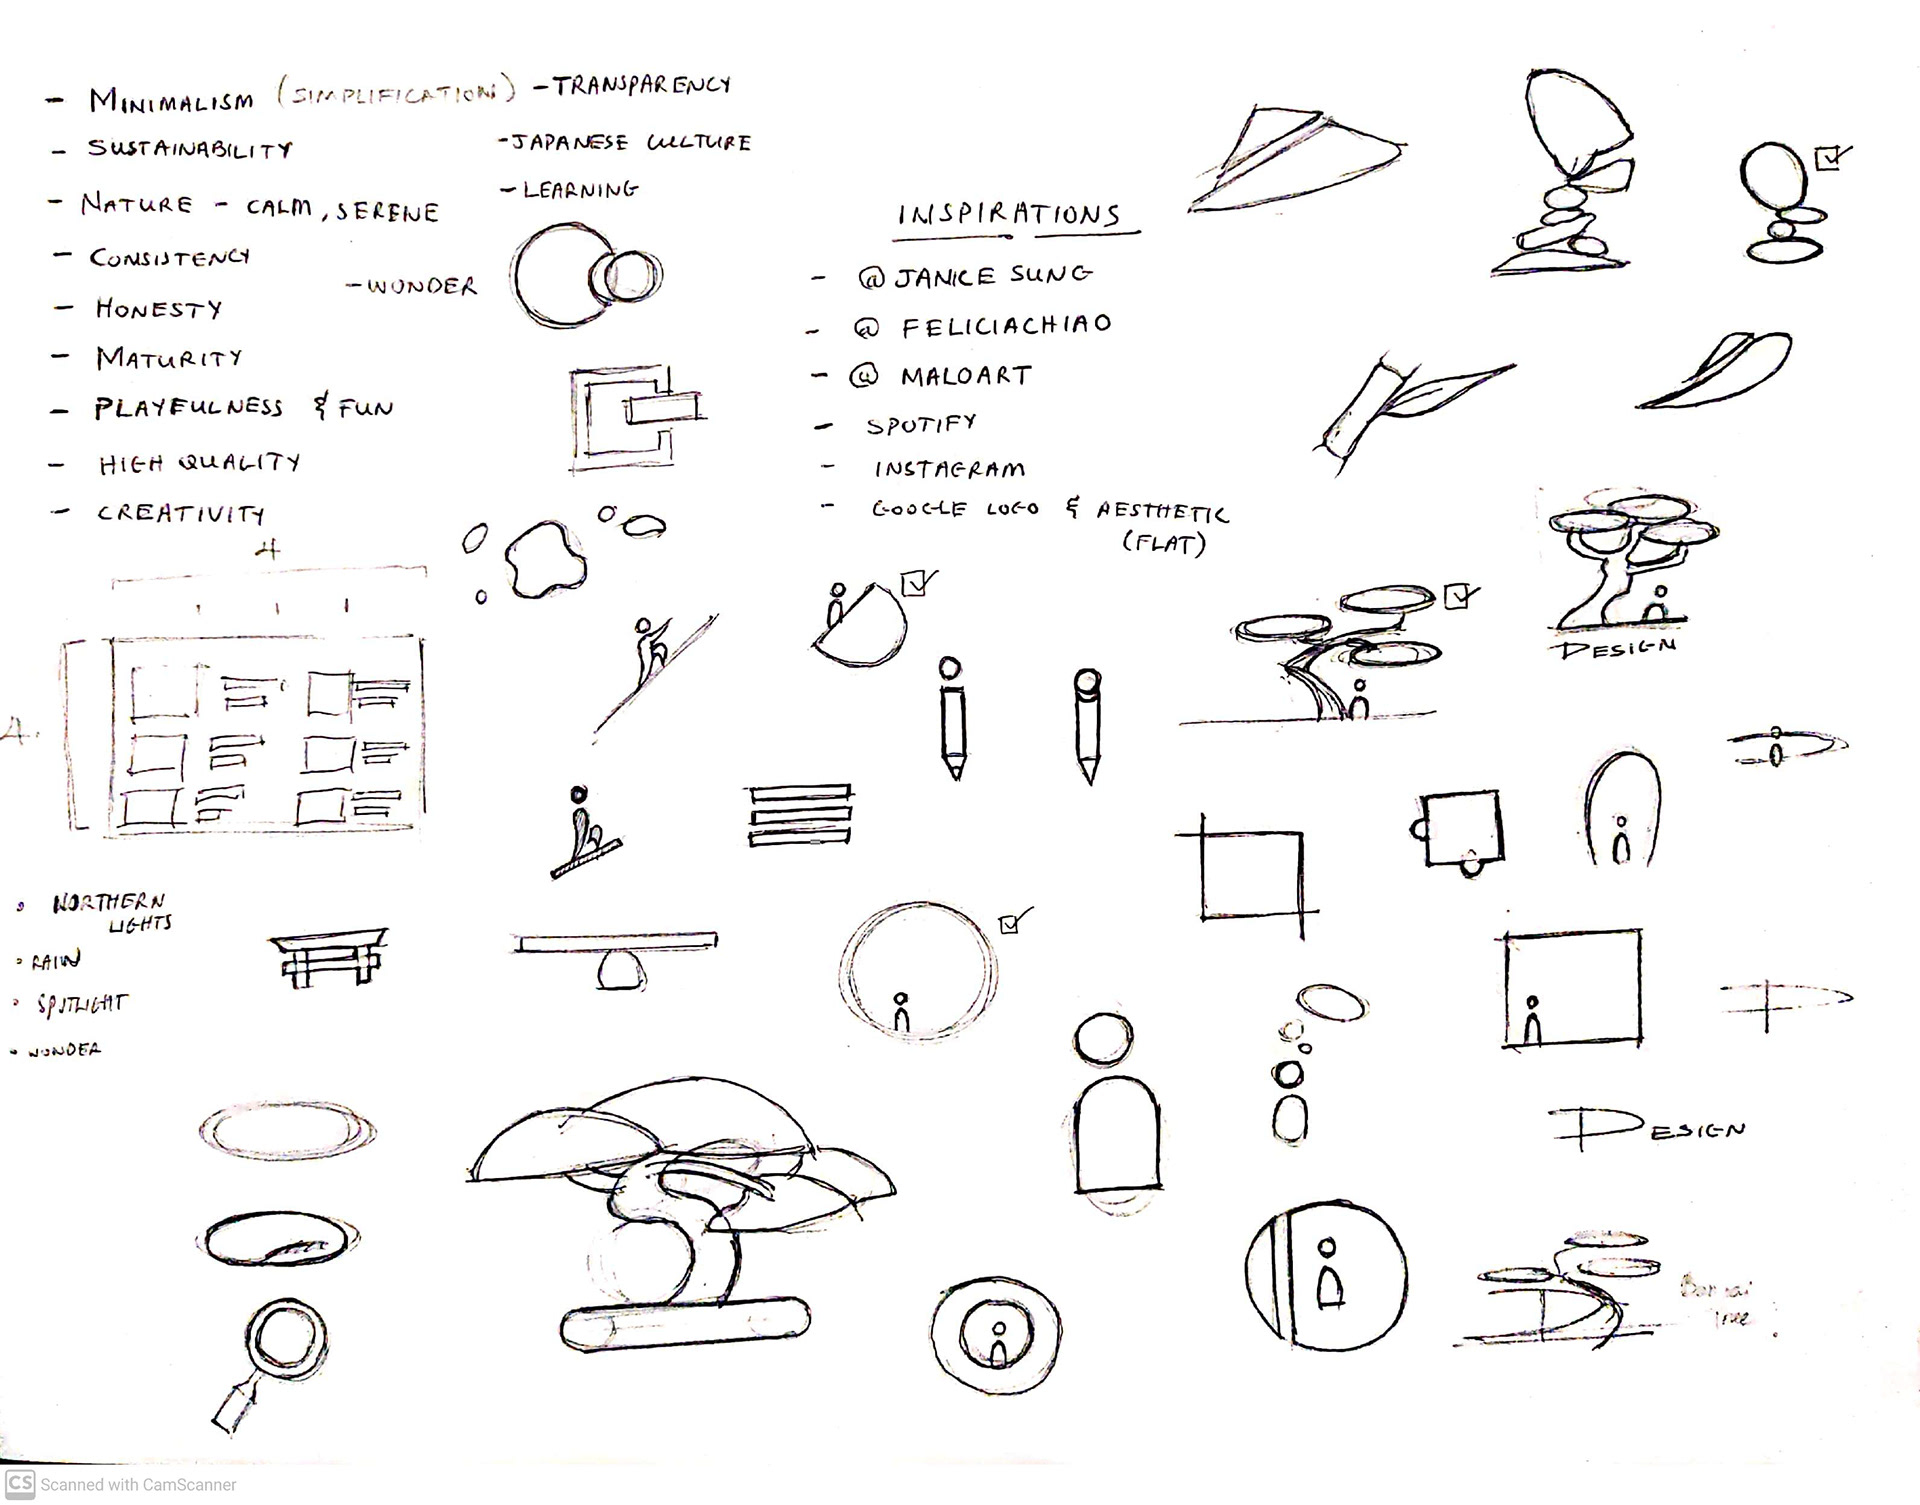 - MINIMALISM (SIMPLIFICATION)
- SUSTAINABILITY
- NATURE - CALM, SERENE
- CONSISTENCY
- HONESTY
- MATURITY
- PLAYFULNESS & FUN
- HIGH QUALITY
- CREATIVITY
- TRANSPARENCY
- JAPANESE CULTURE
- LEARNING
- WONDER
INSPIRATIONS
- @ JANICE SUNG
- @ FELICIACHIAO
- @ MALOART
- SPOTIFY
- INSTAGRAM
- GOOGLE LOGO & AESTHETIC
(FLAT)
4
4.
DESIGN
• NORTHERN
LIGHTS
• RAIN
• SPOTLIGHT
• WONDER
DESIGN
D
D
Bonsai
Tree
CS Scanned with CamScanner